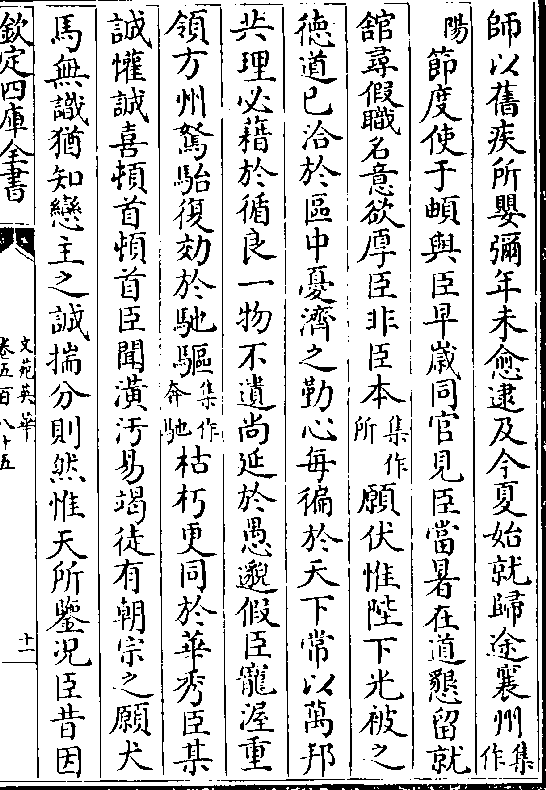 師以舊疾所嬰彌年未愈逮及今夏始就歸途襄州集作
陽節度使于頔與臣早嵗同官見臣當暑在道懇留就
舘尋假職名意欲厚臣非臣本集作所願伏惟陛下光被之
徳道已洽於區中憂濟之勤心每徧於天下常以萬邦
共理必藉於循良一物不遺尚延於愚邈假臣寵渥重
領方州駑駘復効於馳驅集作奔馳枯朽更同於華秀臣某
誠懽誠喜頓首頓首臣聞潢汚易竭徒有朝宗之願犬
馬無識猶知戀主之誠揣分則然惟天所鑒況臣昔因
欽定四庫全書
文苑英華
卷五百八十五
十一